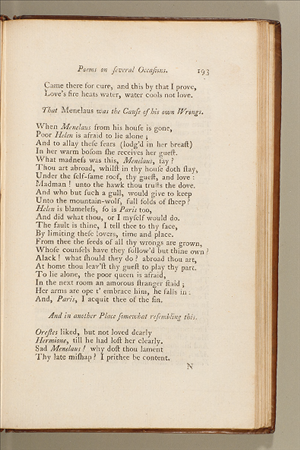 Poems on ſeveral Occaſions. 193
Came there for cure, and this by that I prove,
Love's fire heats water, water cools not love.
That Menelaus was the Cauſe of his own Wrongs.
When Menelaus from his houſe is gone,
Poor Helen is afraid to lie alone ;
And to allay theſe fears (lodg'd in her breaſt)
In her warm boſom ſhe receives her gueſt.
What madneſs was this, Menelaus, ſay ?
Thou art abroad, whilſt in thy houſe doth ſtay,
Under the ſelf-ſame roof, thy gueſt, and love :
Madman ! unto the hawk thou truſts the dove.
And who but ſuch a gull, would give to keep
Unto the mountain-wolf, full folds of ſheep ?
Helen is blameleſs, ſo is Paris too,
And did what thou, or I myſelf would do.
The fault is thine, I tell thee to thy face,
By limiting theſe lovers, time and place.
From thee the ſeeds of all thy wrongs are grown,
Whoſe counſels have they follow'd but thine own ?
Alack ! what ſhould they do ? abroad thou art,
At home thou leav'ſt thy gueſt to play thy part.
To lie alone, the poor queen is afraid,
In the next room an amorous ſtranger ſtaid ;
Her arms are ope t' embrace him, he falls in :
And, Paris, I acquit thee of the ſin.
And in another Place ſomewhat reſembling this.
Oreſtes liked, but not loved dearly
Hermione, till he had loſt her clearly.
Sad Menelaus ! why doſt thou lament
Thy late miſhap ? I prithee be content.
N